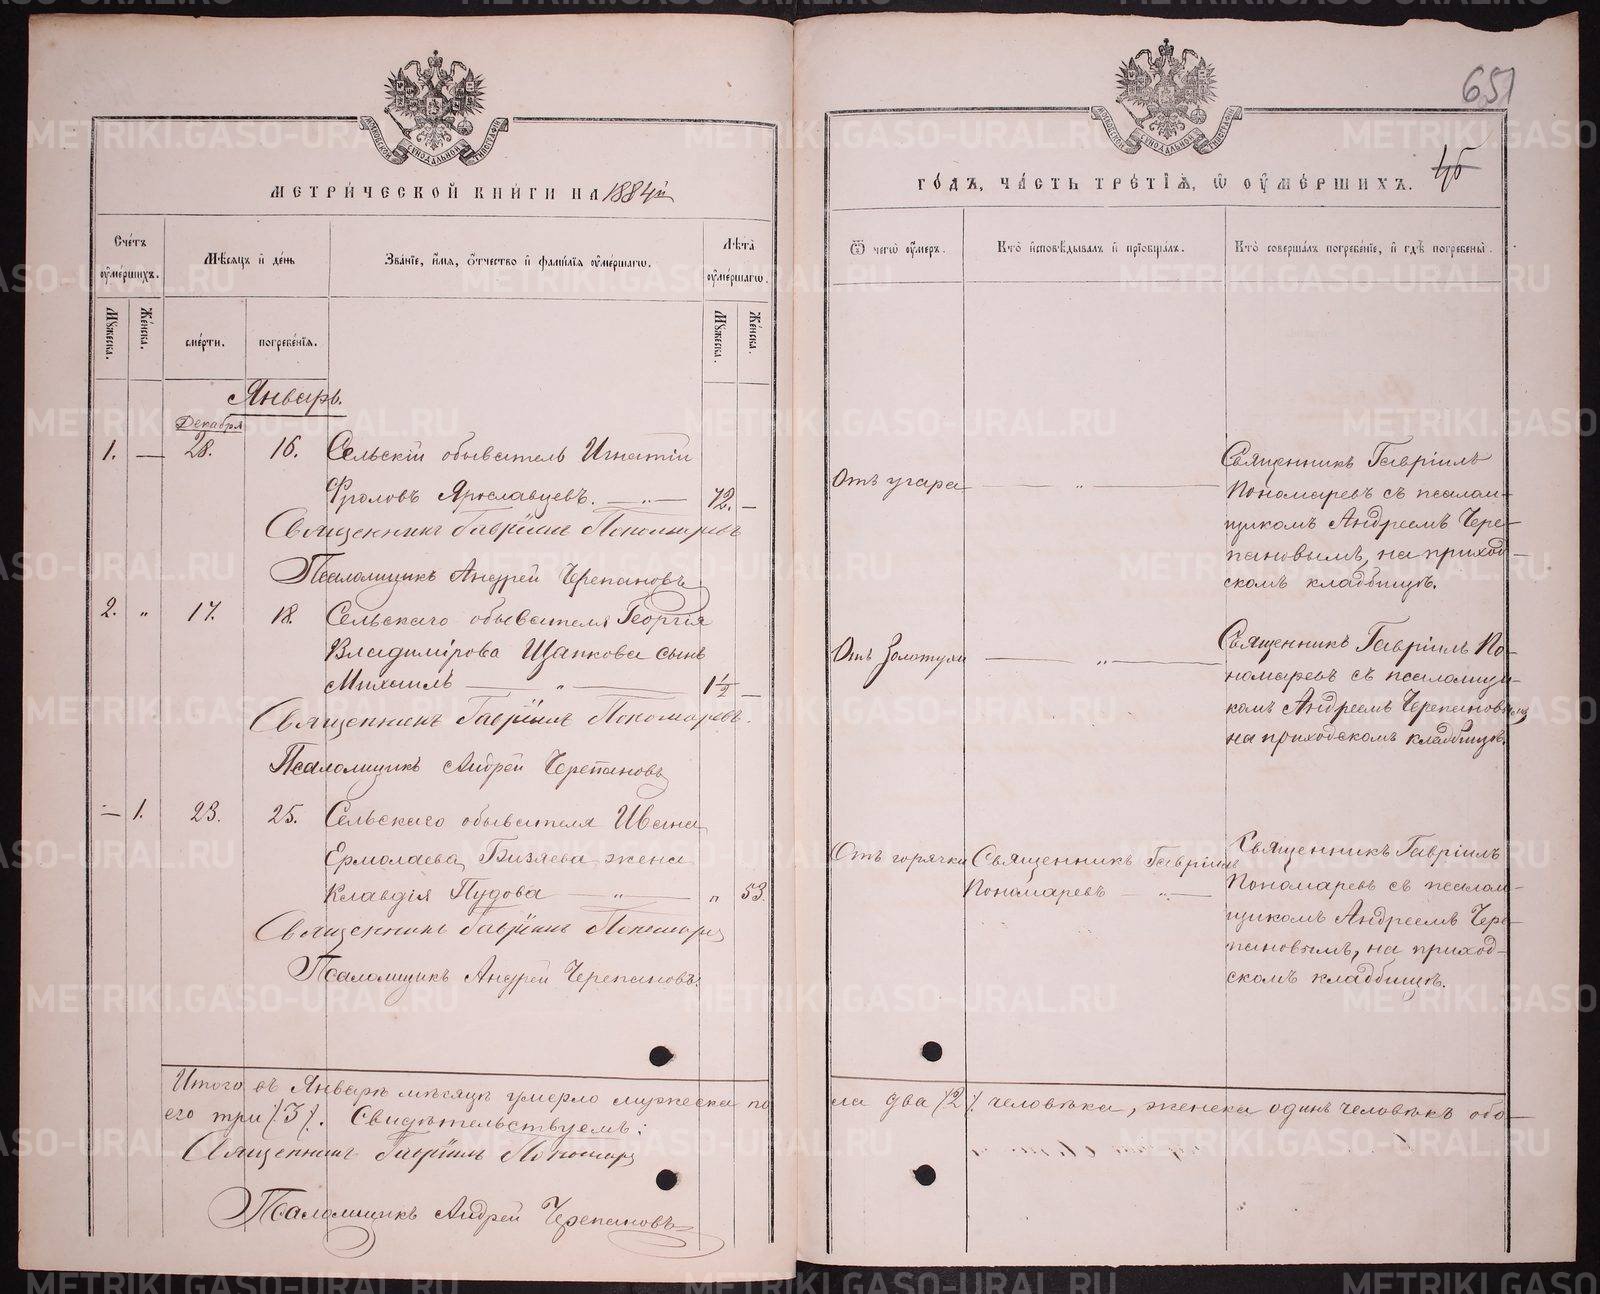 651
46
МЕТРИЧЕСКОЙ КНИГИ НА 1884й
ГОДЪ, ЧАСТЬ ТРЕТІЯ, Ѡ ОУМЕРШИХЪ.
Счетъ оумершихъ.
Мѣсяцъ и день
Званіе, имя, отчество и фамилія оумершагѡ.
Лѣта оумершагѡ.
Мужеска.
Женска.
смерти.
погребенія.
Мужеска.
Женска.
Ѿ чегѡ оумеръ.
Кто исповѣдывалъ и пріобщалъ.
Кто совершалъ погребеніе, и гдѣ погребены.
Январь.
Декабря
1. — 28. 16. Сельскій обыватель Игнатій
Фроловъ Ярославцевъ. — „ — 72. —
Священникъ Гавріилъ Пономаревъ
Псаломщикъ Андрей Черепановъ
Отъ угара — „ —
Священникъ Гавріилъ
Пономаревъ съ псалом-
щикомъ Андреемъ Чере-
пановымъ, на приход-
скомъ кладбищѣ.
2. „ 17. 18. Сельскаго обывателя Георгія
Владимірова Щапкова сынъ
Михаилъ — „ — 1½ —
Священникъ Гавріилъ Пономаревъ.
Псаломщикъ Андрей Черепановъ
Отъ Золотухи — „ —
Священникъ Гавріилъ По-
номаревъ съ псаломщи-
комъ Андреемъ Черепановымъ
на приходскомъ кладбищѣ.
— 1. 23. 25. Сельскаго обывателя Ивана
Ермолаева Бизяева жена
Клавдія Пудова — „ — „ 53.
Священникъ Гавріилъ Пономарев
Псаломщикъ Андрей Черепановъ.
Отъ горячки
Священникъ Гавріилъ
Пономаревъ — „ —
Священникъ Гавріилъ
Пономаревъ съ псалом-
щикомъ Андреемъ Чере-
пановымъ, на приход-
скомъ кладбищѣ.
Итого въ Январѣ мѣсяцѣ умерло мужеска по
ла два /2/. человѣка, женска одинъ человѣкъ обо-
его три /3/. Свидѣтельствуемъ:
Священникъ Гавріилъ Пономарев
Псаломщикъ Андрей Черепановъ
METRIKI.GASO-URAL.RU